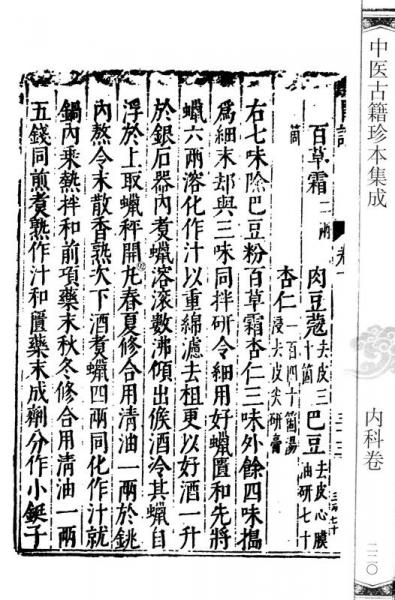 中医古籍珍本集成
内科卷
二二〇
百草霜二兩 肉豆蔻去皮三十箇 巴豆去皮心膜油研七十
箇 杏仁一百四十箇湯浸去皮尖研膏
右七味除巴豆粉百草霜杏仁三味外餘四味搗
爲細末却與三味同拌研令細用好蠟匱和先將
蠟六兩溶化作汁以重綿濾去柤更以好酒一升
於銀石器內煮蠟溶滚數沸傾出候酒冷其蠟自
浮於上取蠟秤開凡春夏修合用清油一兩於銚
內熬令末散香熟次下酒煮蠟四兩同化作汁就
鍋內乘熱拌和前項藥末秋冬修合用清油一兩
五錢同煎煮熟作汁和匱藥末成劑分作小鋌子